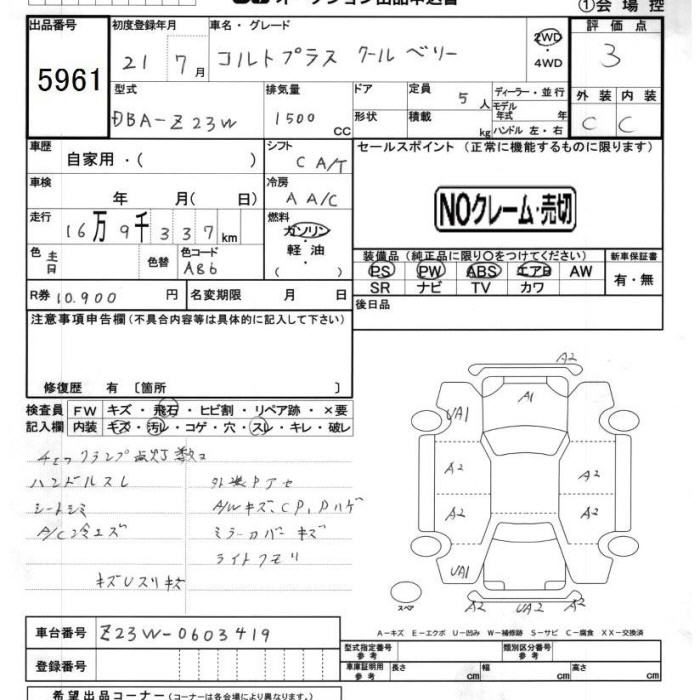 オークション出品申込書
①会場控
出品番号 初度登録年月 車名・グレード 評価点
5961 21 7月 コルトプラス クールベリー 2WD 4WD 3
型式 排気量 ドア 定員 ディーラー・並行 外装 内装
DBA-Z23W 1500 CC 形状 積載 5人 kg モデル年式 年 ハンドル 左・右 C C
車歴 自家用・( ) シフト C A/T セールスポイント (正常に機能するものに限ります)
車検 年 月(日) 冷房 A A/C NOクレーム・売切
走行 16万9千337km 燃料 ガソリン・軽油・( )
色 色替 色コード A86
装備品 (純正品に限り〇をつけてください) 新車保証書
PS PW ABS エアB AW 有・無
SR ナビ TV カワ
R券 10.900 円 名変期限 月 日 後日品
注意事項申告欄 (不具合内容等は具体的に記入して下さい)
修復歴 有 〔箇所 〕
検査員 FW キズ・飛石・ヒビ割・リペア跡・×要
記入欄 内装 キズ・汚レ・コゲ・穴・スレ・キレ・破レ
ハンドルスレ
シートシミ A/Wキズ、CP、Pハゲ
ミラーカバーキズ
ライトクモリ
A2
A1
UA1
A2 A2
A2 A2
UA1 A2
A2
スペア
A-キズ E-エクボ U-凹み W-補修跡 S-サビ C-腐食 XX-交換済
車台番号 Z23W-0603419
型式指定番号 参考 類別区分番号 参考
登録番号 車庫証明用 参考 長さ cm 幅 cm 高さ cm
希望出品コーナー (コーナーは各会場により異なります。)